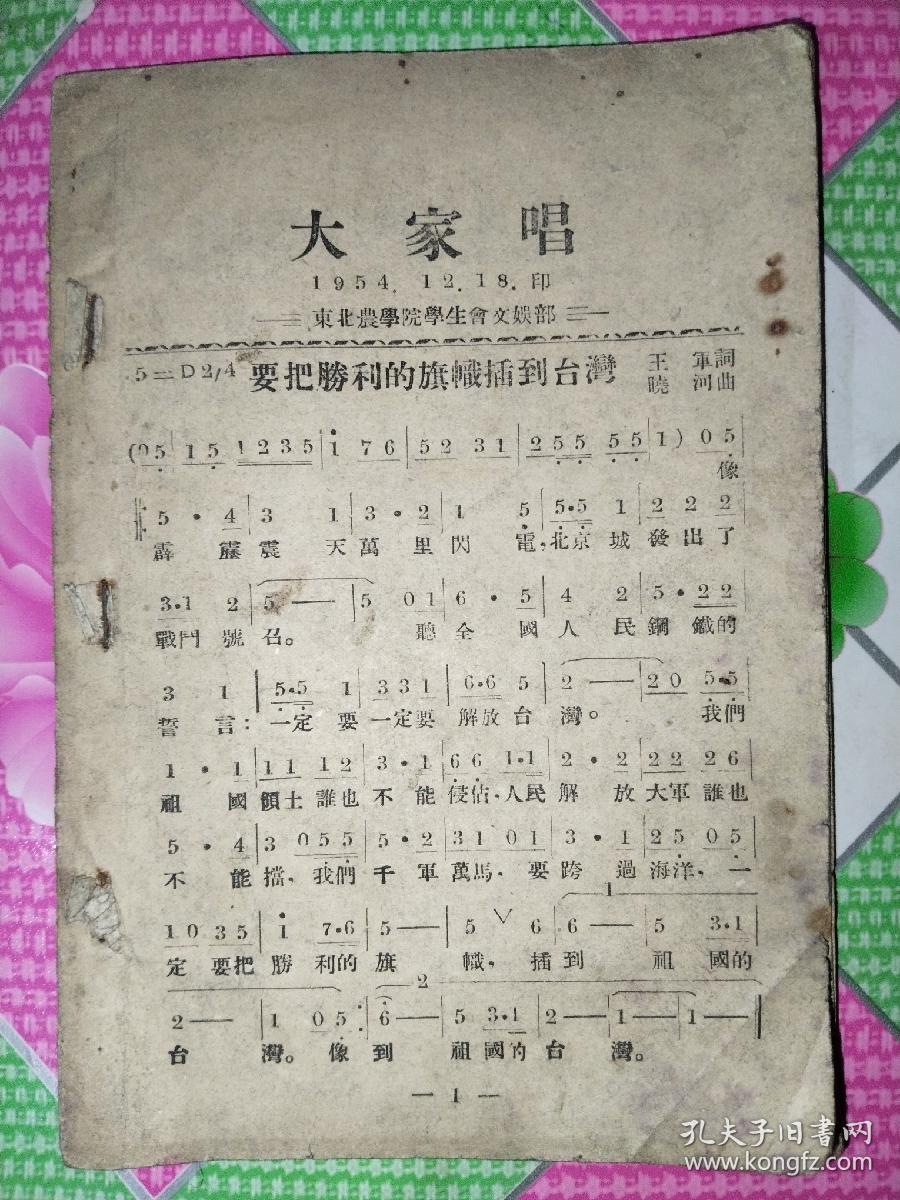 大家唱
1954.12.18.印
東北農學院學生會文娛部
5=D 2/4 要把勝利的旗幟插到台灣 王軍詞
曉河曲
(05|15 1235|i 76|52 31|255 55|1) 05|
像
5·4|3 1|3·2|1 5|5·5 1|2 2 2|
霹靂震天萬里閃電,北京城發出了
3·1 2|5—|5 01|6·5|4 2|5·22|
戰鬥號召。 聽全國人民鋼鐵的
3 1|5·5 1|331|6·6 5|2—|20 5·5|
誓言:一定要一定要解放台灣。 我們
1·1|11 12|3·1|66 1·1|2·2|22 26|
祖國領土誰也不能侵佔,人民解放大軍誰也
5·4|3 055|5·2|31 01|3·1|25 05|
不能擋,我們千軍萬馬,要跨過海洋,一
1
10 35|i 7·6|5—|5 V 6|6—|5 3·1|
定要把勝利的旗幟,插到祖國的
2
2—|1 05:|6—|5 3·1|2—|1—|1—|
台灣。像到祖國的台灣。
— 1 —
孔夫子旧書网
www.kongfz.com